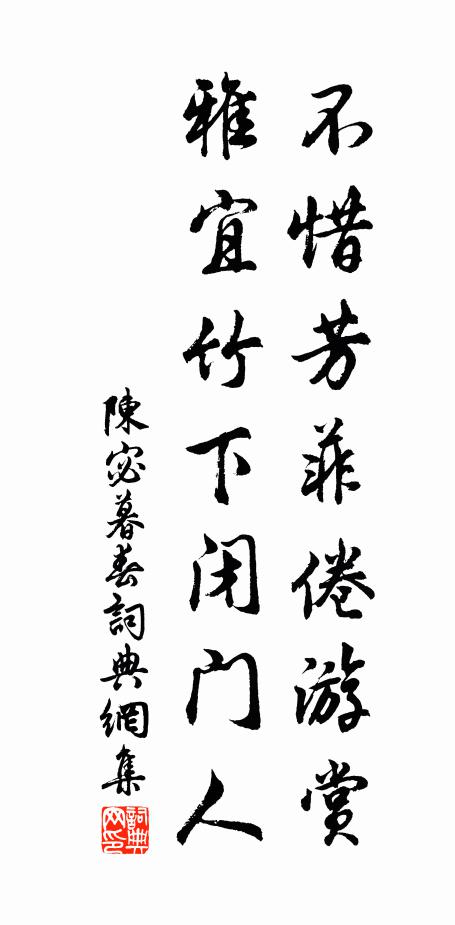 不惜芳菲倦游赏
雅宜竹下闭门人
陳宓暮春詞典網集
詞典网印